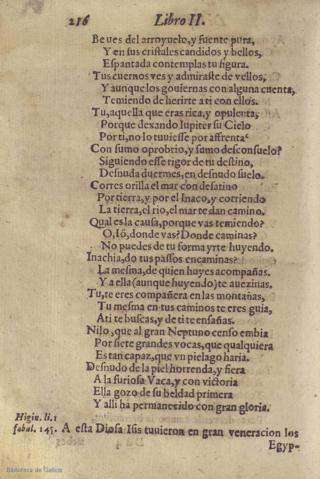 216 Libro II.
Beues del arroyuelo, y fuente pura,
Y en sus cristales candidos y bellos,
Espantada contemplas tu figura.
Tus cuernos ves y admiraste de vellos,
Y aunque los gouiernas con alguna cuenta,
Temiendo de herirte a ti con ellos.
Tu, aquella que eras rica, y opulenta,
Porque dexando Iupiter su Cielo
Por ti, no lo tuuiesse por affrenta.
Con sumo oprobrio, y sumo desconsuelo?
Siguiendo esse rigor de tu destino,
Desnuda duermes, en desnudo suelo.
Corres orilla el mar con desatino
Por tierra, y por el Inaco, y corriendo
La tierra, el rio, el mar te dan camino.
Qual es la causa, porque vas temiendo?
O, Iô, donde vas? Donde caminas?
No puedes de tu forma yrte huyendo.
Inachia, do tus passos encaminas?
La mesma, de quien huyes acompañas.
Y a ella (aunque huyendo) te auezinas.
Tu, te eres compañera en las montañas,
Tu mesma en tus caminos te eres guia,
A ti te buscas, y de ti te ensañas.
Nilo, que al gran Neptuno censo embia
Por siete grandes vocas, que qualquiera
Es tan capaz, que vn pielago haria.
Desnudo de la piel horrenda, y fiera
A la furiosa Vaca, y con victoria
Ella gozo de su beldad primera
Y alli ha permanecido con gran gloria.
Higin. li. 1
fabul. 145. A esta Diosa Isis tuuieron en gran veneracion los
Egyp-
Biblioteca de Galicia